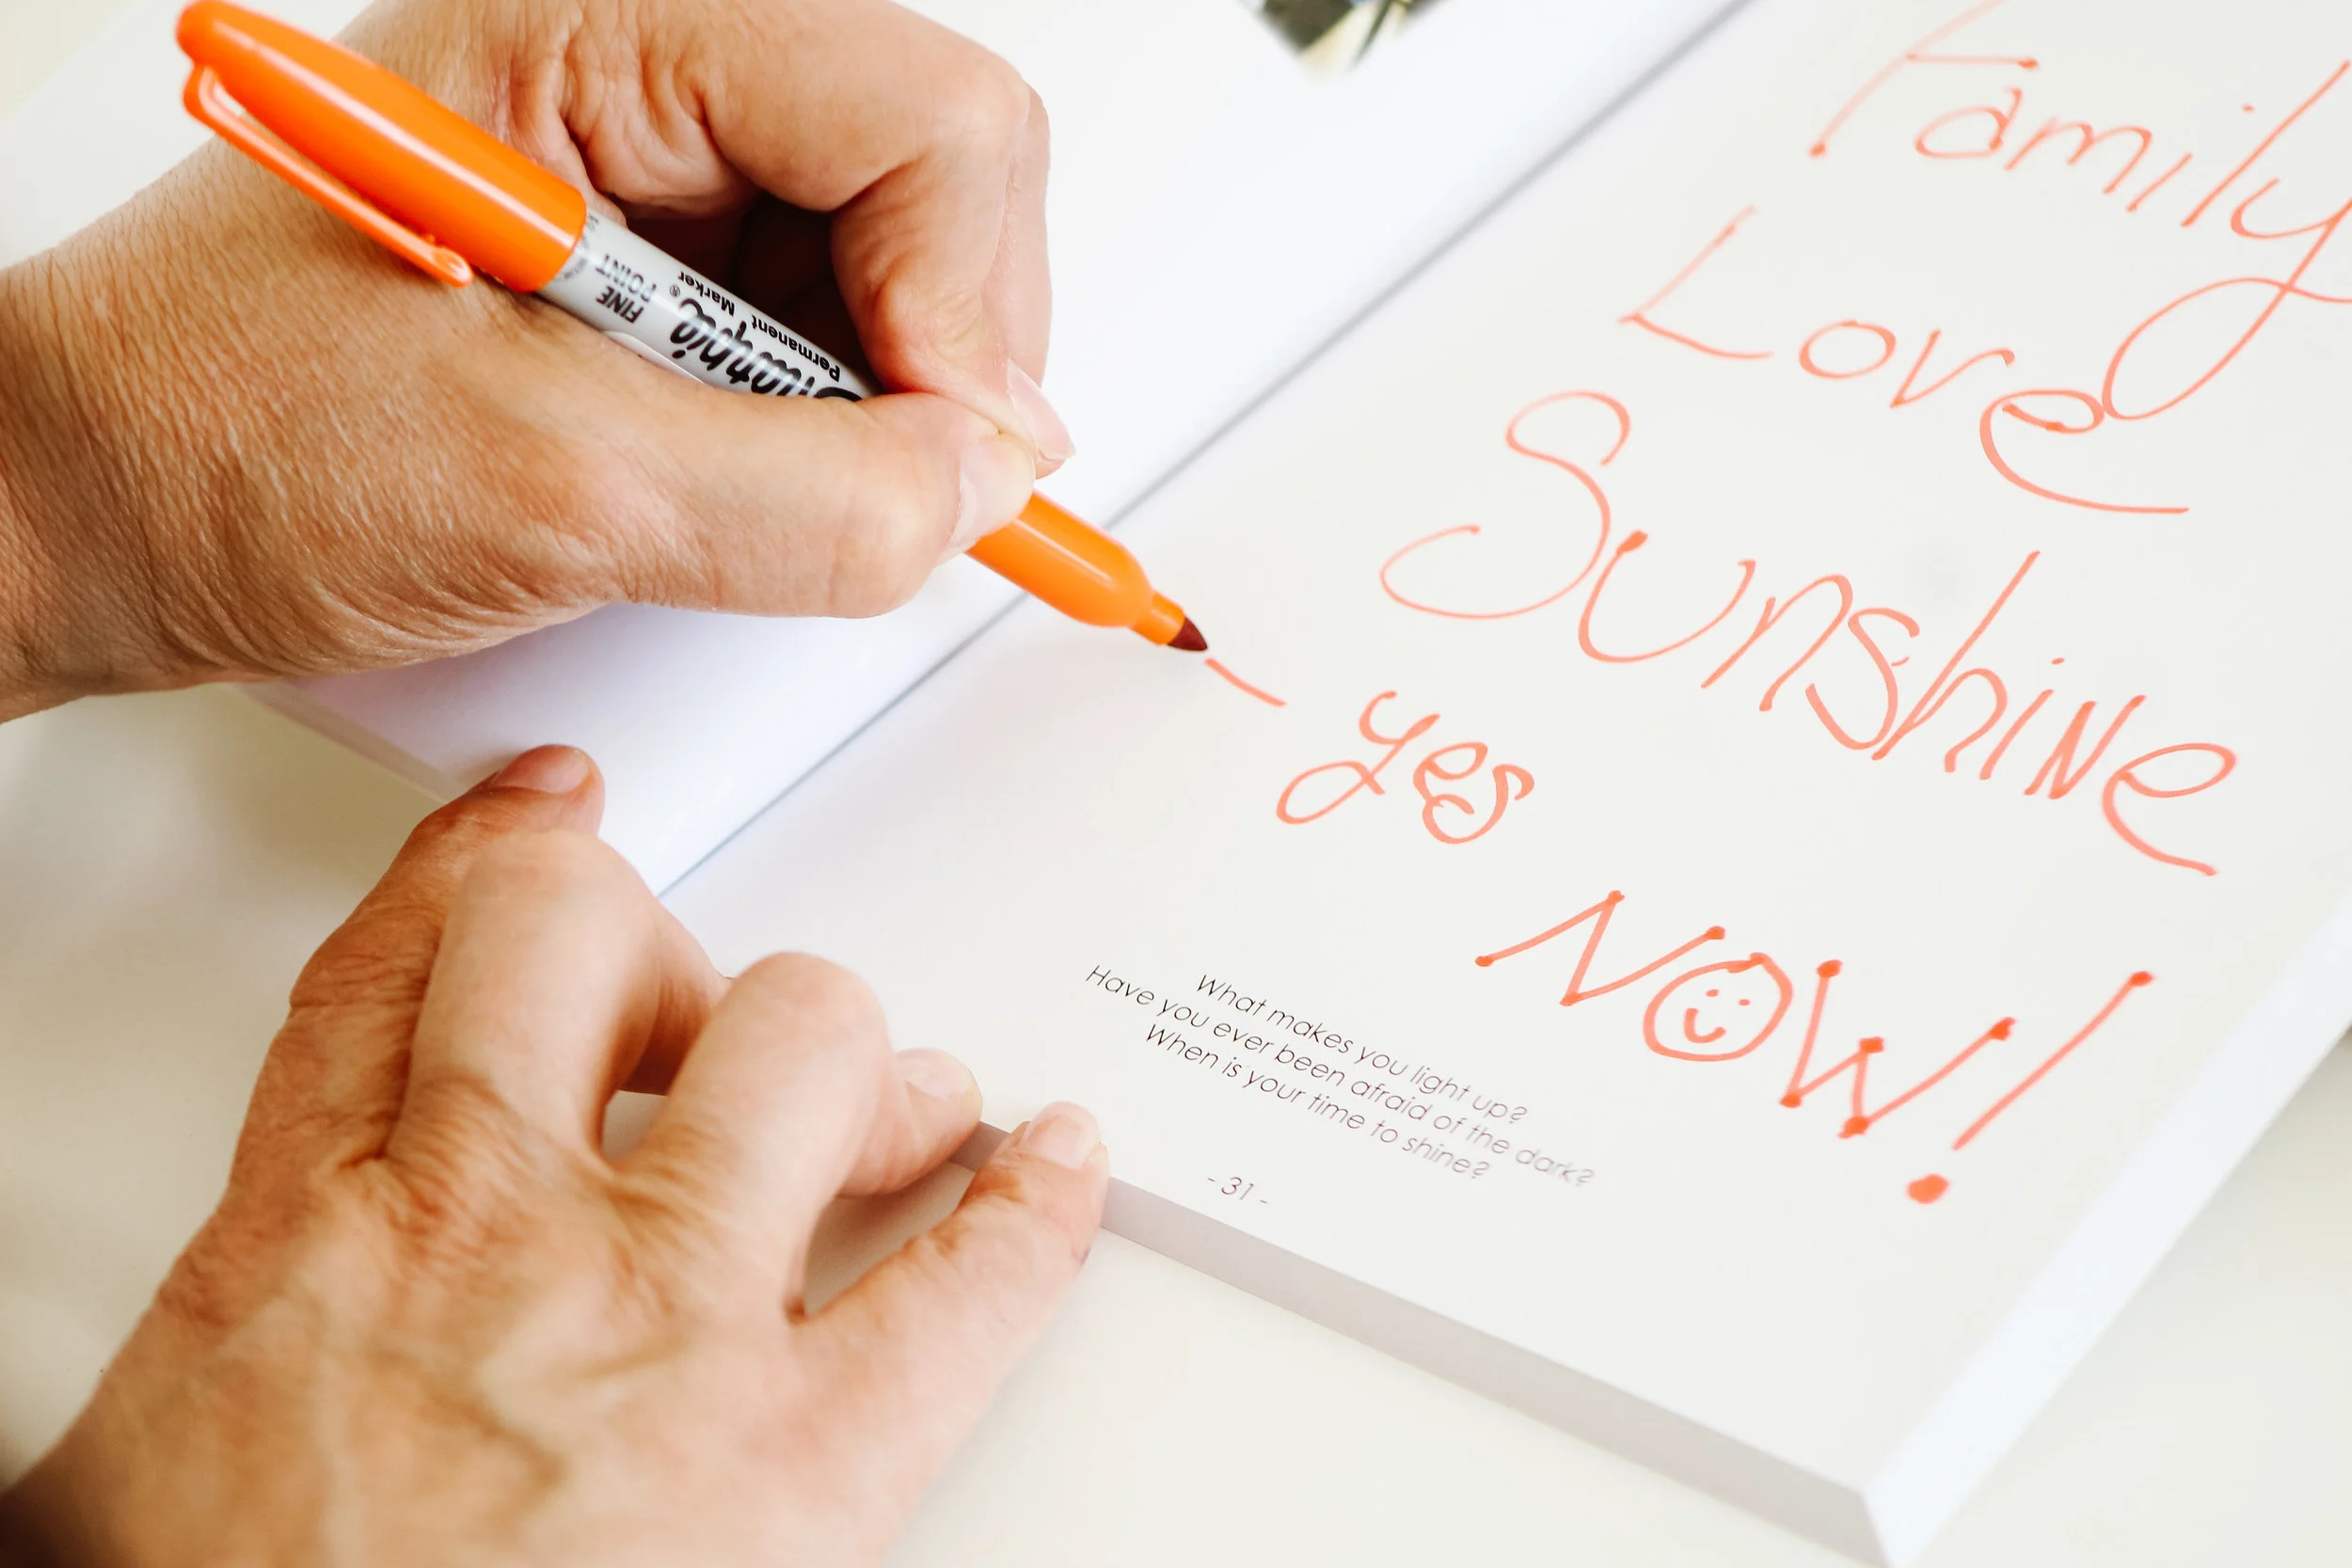 Family
Love
Sunshine
- yes
NOW!
What makes you light up?
Have you ever been afraid of the dark?
When is your time to shine?
- 31 -
FINE
POINT
Sharpie®
Permanent Marker